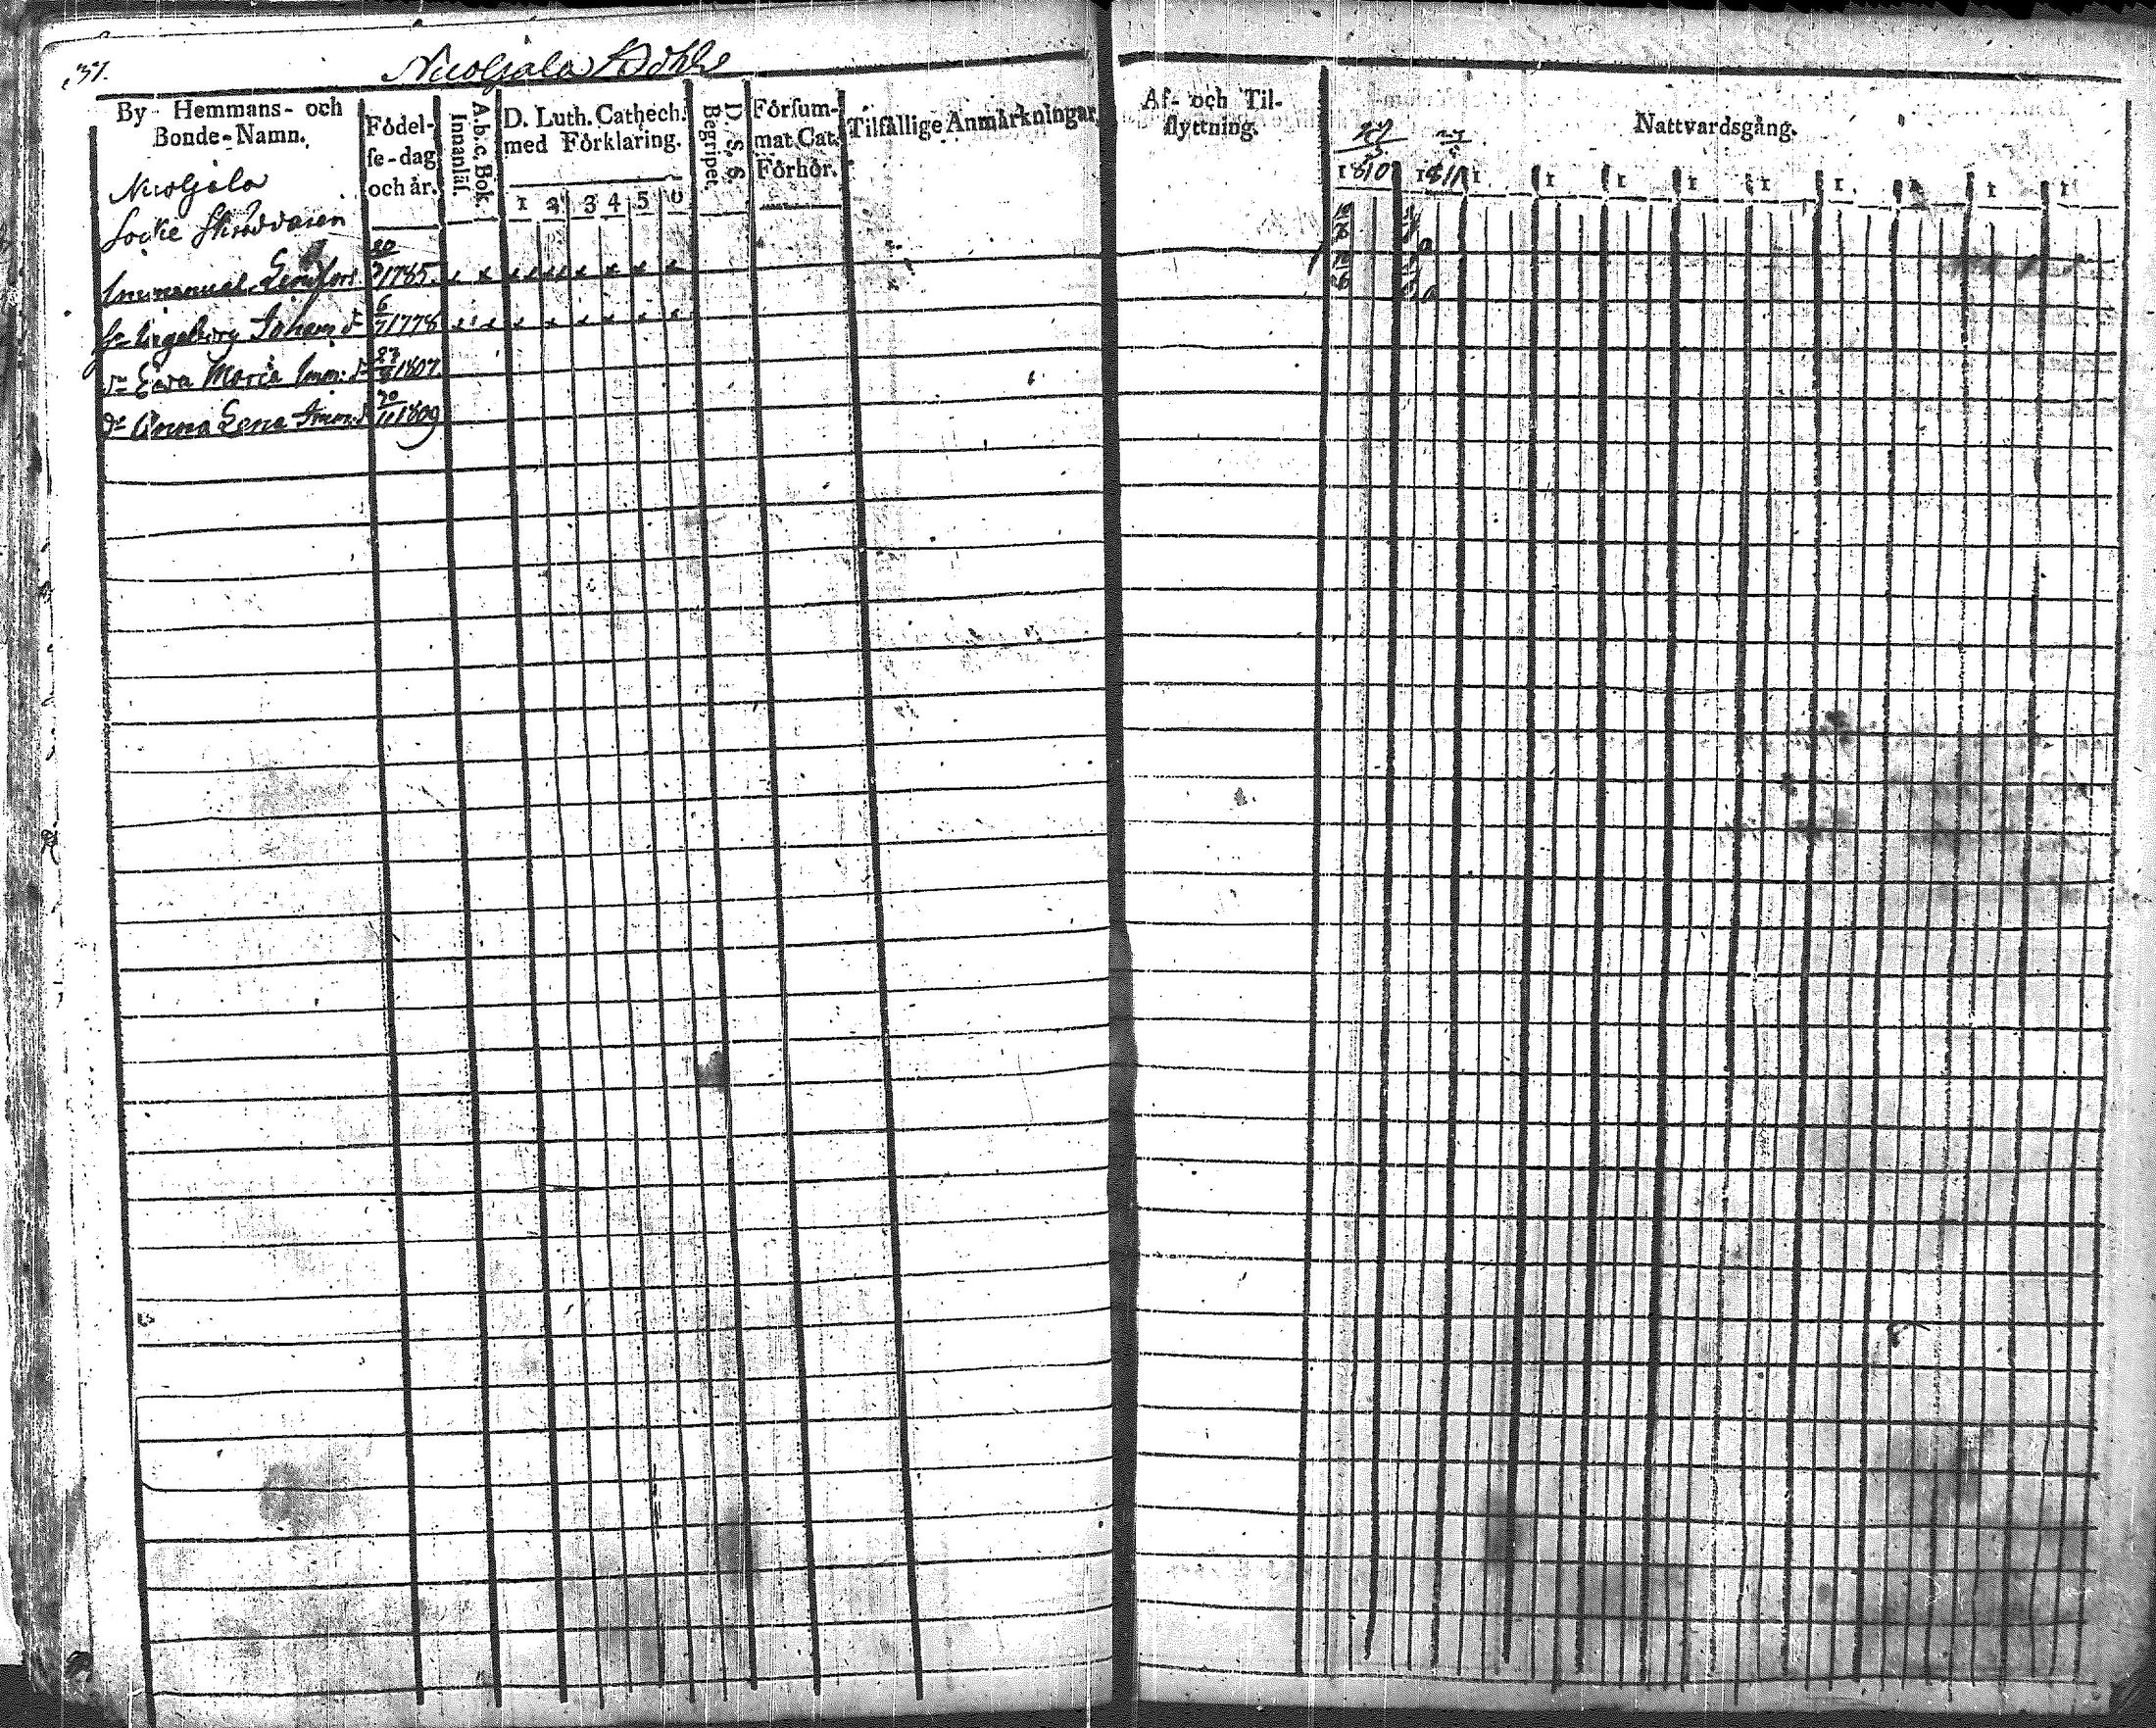 37.
Nicolsala Bohle
By Hemmans- och
Bonde-Namn.
Födel-
se-dag
och år.
A.b.c. Bok.
Innanläs.
D. Luth. Cathech.
med Förklaring.
1 2 3 4 5 6
D. A. S.
Begripet.
Försum-
mat Cat.
Förhör.
Tilfällige Anmärkningar,
Nicolsala
Socke Skräddaren
Immanuel 20 1785. x x x x x x x x
hu Ingeborg Joham. dr 6/7 1778 x x x x x x x x
dr Eva Maria Imm: dr 27/8 1807.
dr Anna Lena Imm. dr 20/11 1809
Af- och Til-
flyttning.
Nattvardsgång.
1810 1811 1 1 1 1 1 1 1 1 1